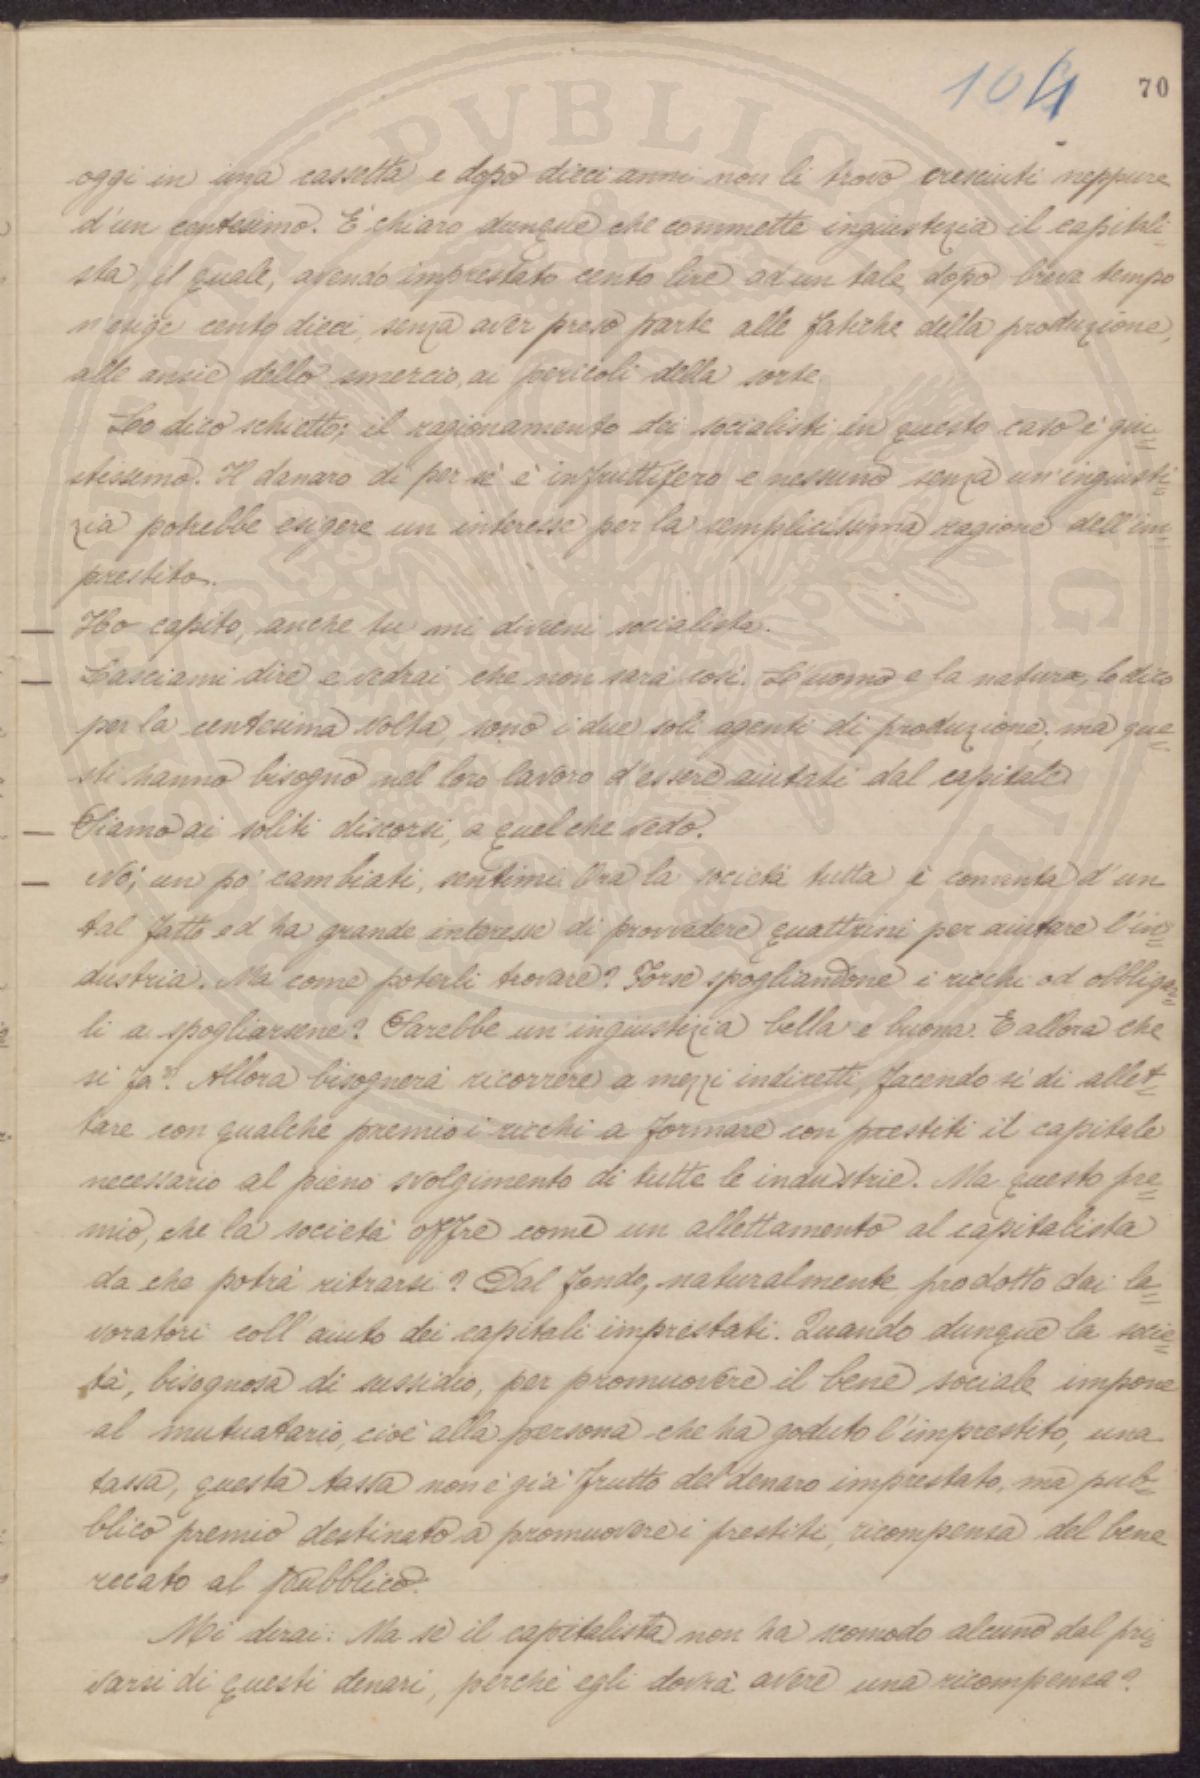 104
70
oggi in una cassetta e dopo dieci anni non li trovo cresciuti neppure
d'un centesimo. È chiaro dunque che commette ingiustizia il capitali-
sta, il quale, avendo imprestato cento lire ad un tale, dopo breve tempo
n'esige cento dieci, senza aver preso parte alle fatiche della produzione,
alle ansie dello smercio, ai pericoli della sorte.
Lo dico schietto; il ragionamento dei socialisti in questo caso è giu=
stissimo. Il danaro di per sè è infruttifero e nessuno senza un'ingiusti=
zia potrebbe esigere un interesse per la semplicissima ragione dell'im=
prestito.
— Ho capito, anche tu mi divieni socialista.
— Lasciami dire e vedrai che non sarà così. L'uomo e la natura, lo dico
per la centesima volta, sono i due soli agenti di produzione; ma que=
sti hanno bisogno nel loro lavoro d'essere aiutati dal capitale
— Siamo ai soliti discorsi, a quel che vedo.
— No; un po' cambiati, sentimi. Ora la società tutta è convinta d'un
tal fatto ed ha grande interesse di provvedere quattrini per aiutare l'in=
dustria. Ma come poterli trovare? Forse spogliandone i ricchi od obbliga=
li a spogliarsene? Sarebbe un'ingiustizia bella e buona. E allora che
si fa? Allora bisognerà ricorrere a mezzi indiretti, facendo sì di allet=
tare con qualche premio i ricchi a formare con prestiti il capitale
necessario al pieno svolgimento di tutte le industrie. Ma questo pre=
mio, che la società offre come un allettamento al capitalista
da che potrà ritrarsi? Dal fondo, naturalmente prodotto dai la=
voratori coll'aiuto dei capitali imprestati. Quando dunque la socie=
tà, bisognosa di sussidio, per promuovere il bene sociale impone
al mutuatario, cioè alla persona che ha goduto l'imprestito, una
tassa, questa tassa non è già frutto del denaro imprestato, ma pub=
blico premio destinato a promuovere i prestiti, ricompensa del bene
recato al pubblico.
Mi dirai: Ma se il capitalista non ha scomodo alcuno dal pri=
varsi di questi denari, perchè egli dovrà avere una ricompensa?